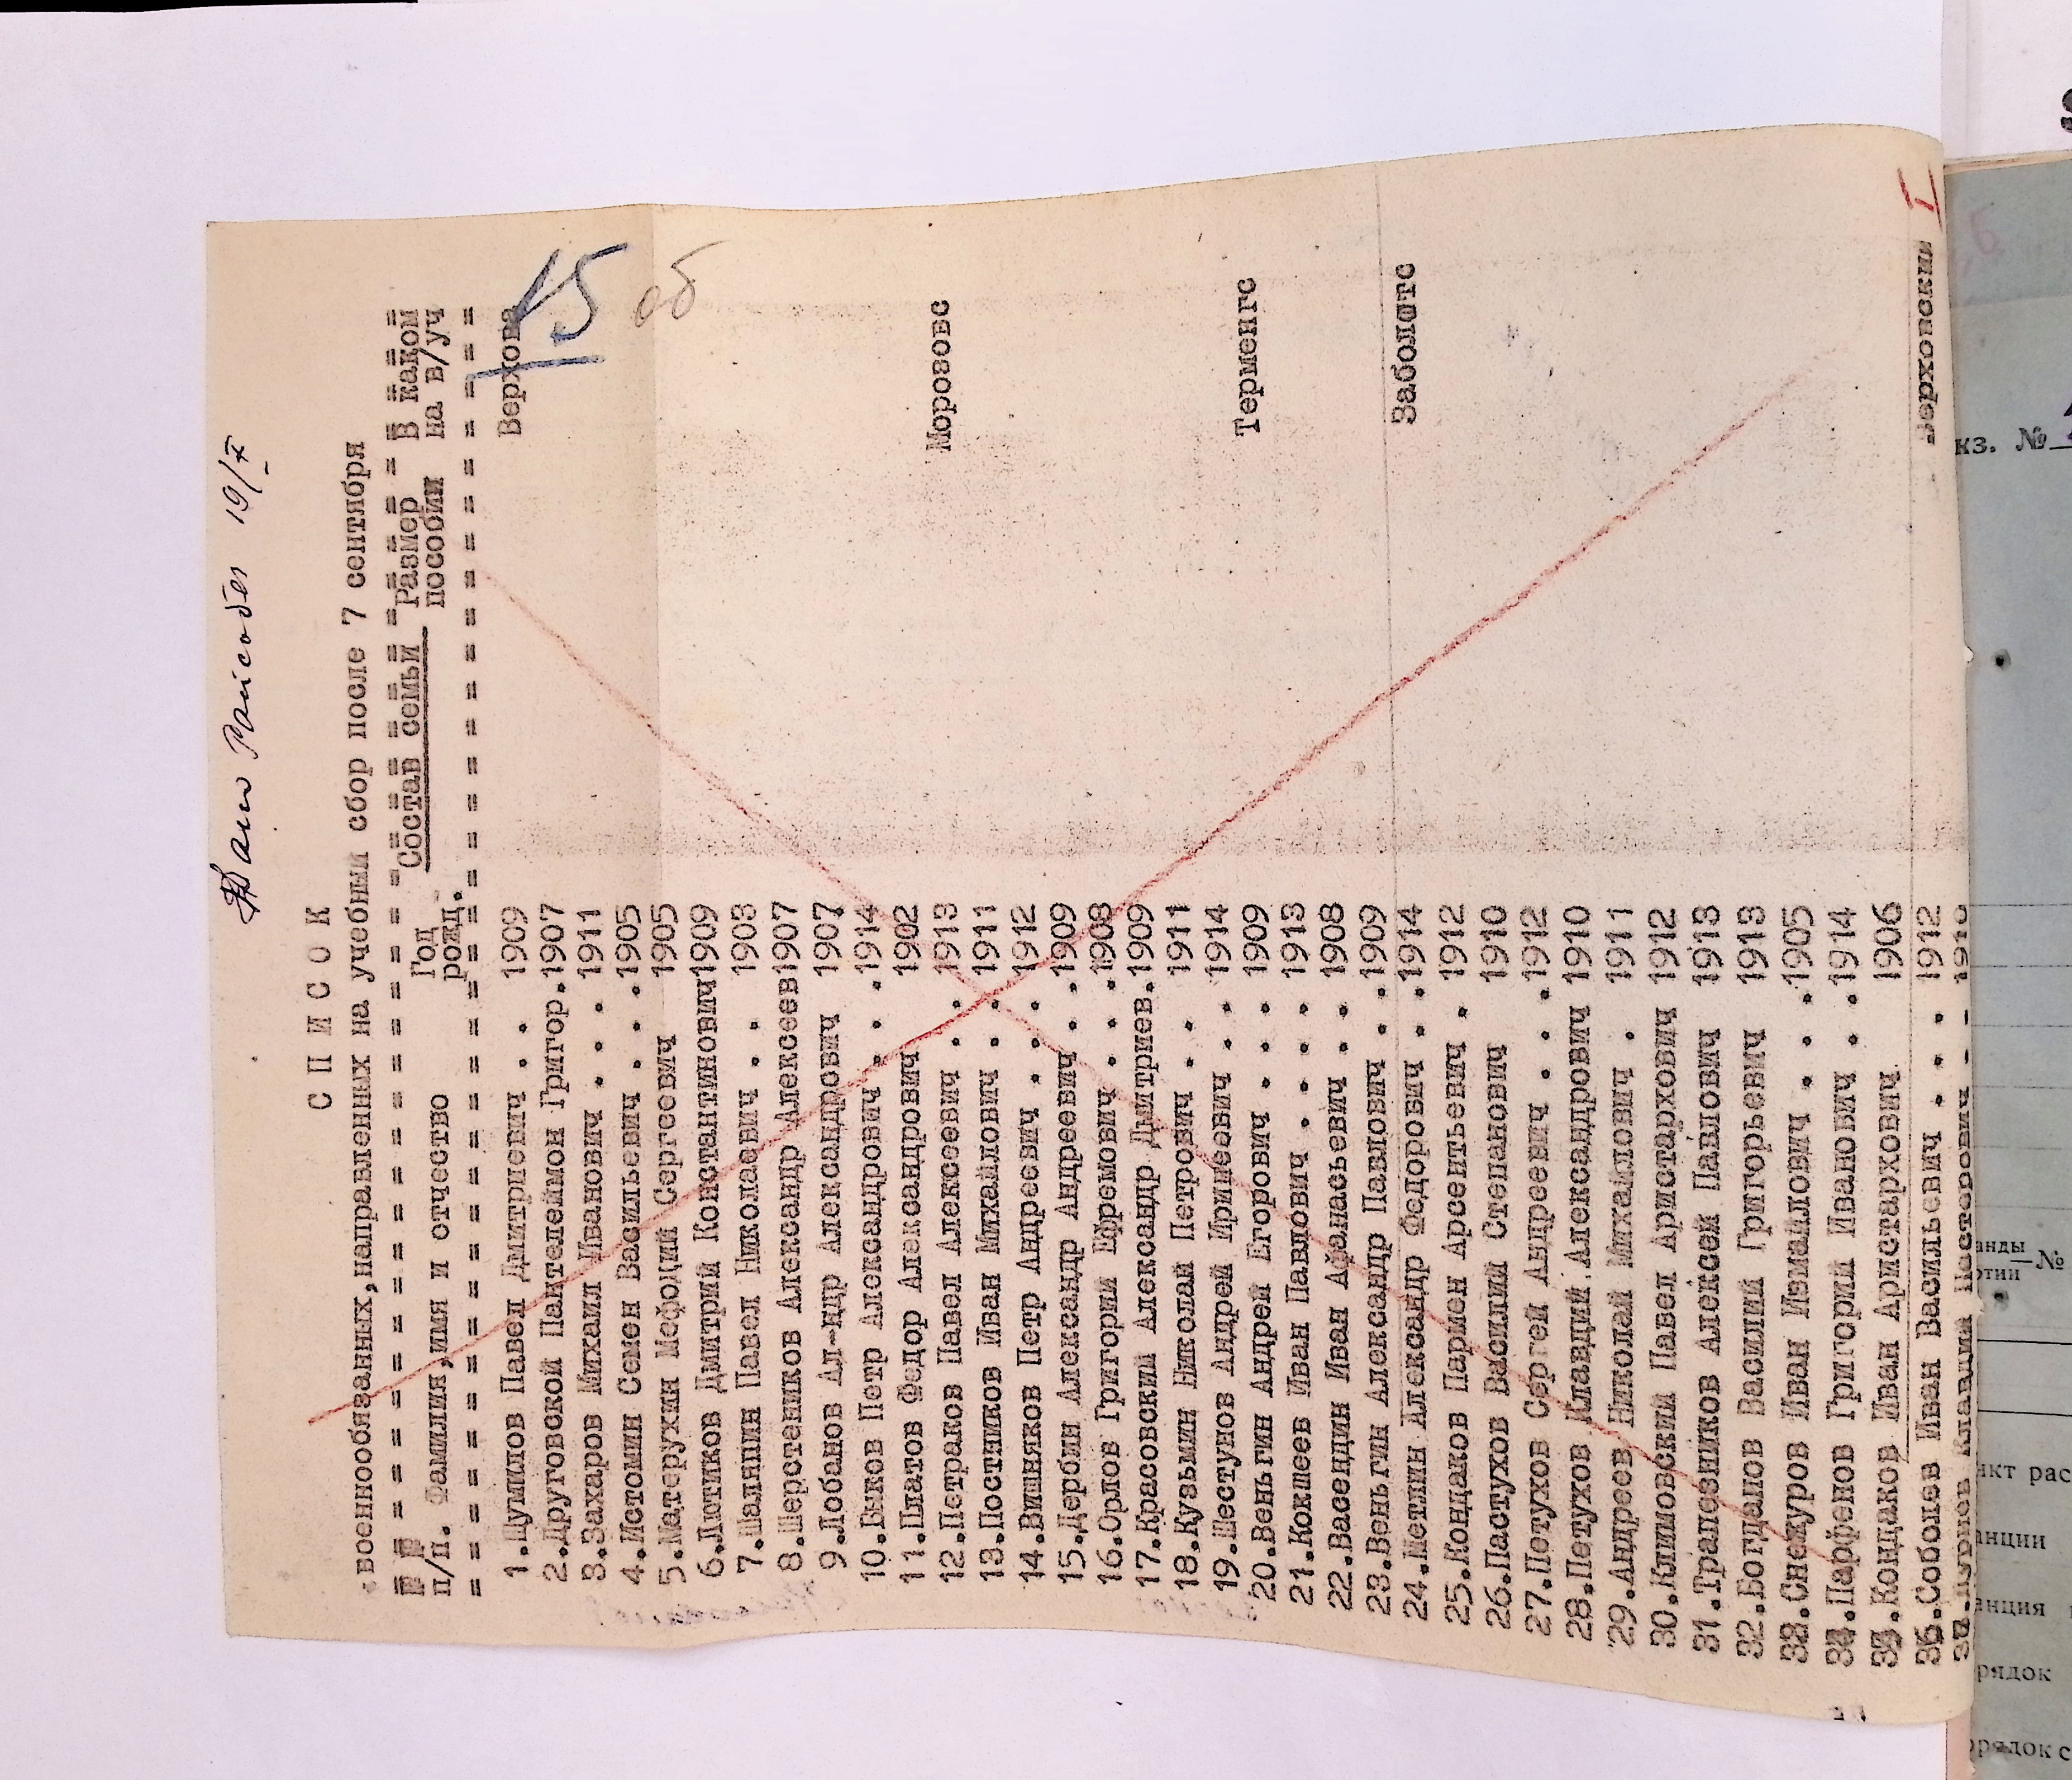 Дано Райсобез 19/X
С П И С О К
военнообязанных,направленных на учебный сбор после 7 сентября
= = = = = = = = = = = = = = = = = = = = = = = = = =
№№ Год Состав семьи Размер В каком
п/п. Фамилия,имя и отчество рожд. пособия на в/уч
= = = = = = = = = = = = = = = = = = = = = = = = = =
1.Шумилов Павел Дмитриевич . . 1909 Верхова
15
2.Друговской Пантелеймон Григор.1907
3.Захаров Михаил Иванович . . . 1911
4.Истомин Семен Васильевич . . .1905
об
5.Матерухин Мефодий Сергеевич 1905
6.Летиков Дмитрий Константинович1909
7.Шаляпин Павел Николаевич . . 1903
8.Шерстеников Александр Алексеев1907
9.Лобанов Ал-ндр Александрович 1907
10.Быков Петр Александрович . . .1914
11.Платов Федор Александрович 1902
12.Петраков Павел Алексеевич . . 1913 Морозовс
13.Постников Иван Михайлович . . 1911
14.Вишняков Петр Андреевич . . . 1912
15.Дербин Александр Андреевич . .1909
16.Орлов Григорий Ефремович . . .1908
17.Красовский Александр Дмитриев.1909
18.Кузьмин Николай Петрович . . 1911
19.Шестунов Андрей Иринеевич . . 1914
20.Веньгин Андрей Егорович . . . 1909 Терменгс
21.Кокшеев Иван Павлович . . . . 1913
22.Васендин Иван Афанасьевич . . 1908
23.Веньгин Александр Павлович . .1909
24.Метлин Александр Федорович . .1914 Заболотс
25.Кондаков Пармен Арсентьевич . 1912
26.Пастухов Василий Степанович 1910
27.Петухов Сергей Андреевич . . .1912
28.Петухов Клавдий.Александрович 1910
29.Андреев Николай Михайлович . 1911
30.Климовский Павел Аристархович 1912
31.Трапезников Алексей Павлович 1913
32.Богданов Василий Григорьевич 1913
33.Снежуров Иван Измайлович . . .1905
34.Парфенов Григорий Иванович . .1914
35.Кондаков Иван Аристархович 1906
36.Соболев Иван Васильевич . . . 1912 Верховский
I
Клавдий Нестерович - -
кз. №
анды
отии — №
нкт рас
анции
енция
рядок
орядок с